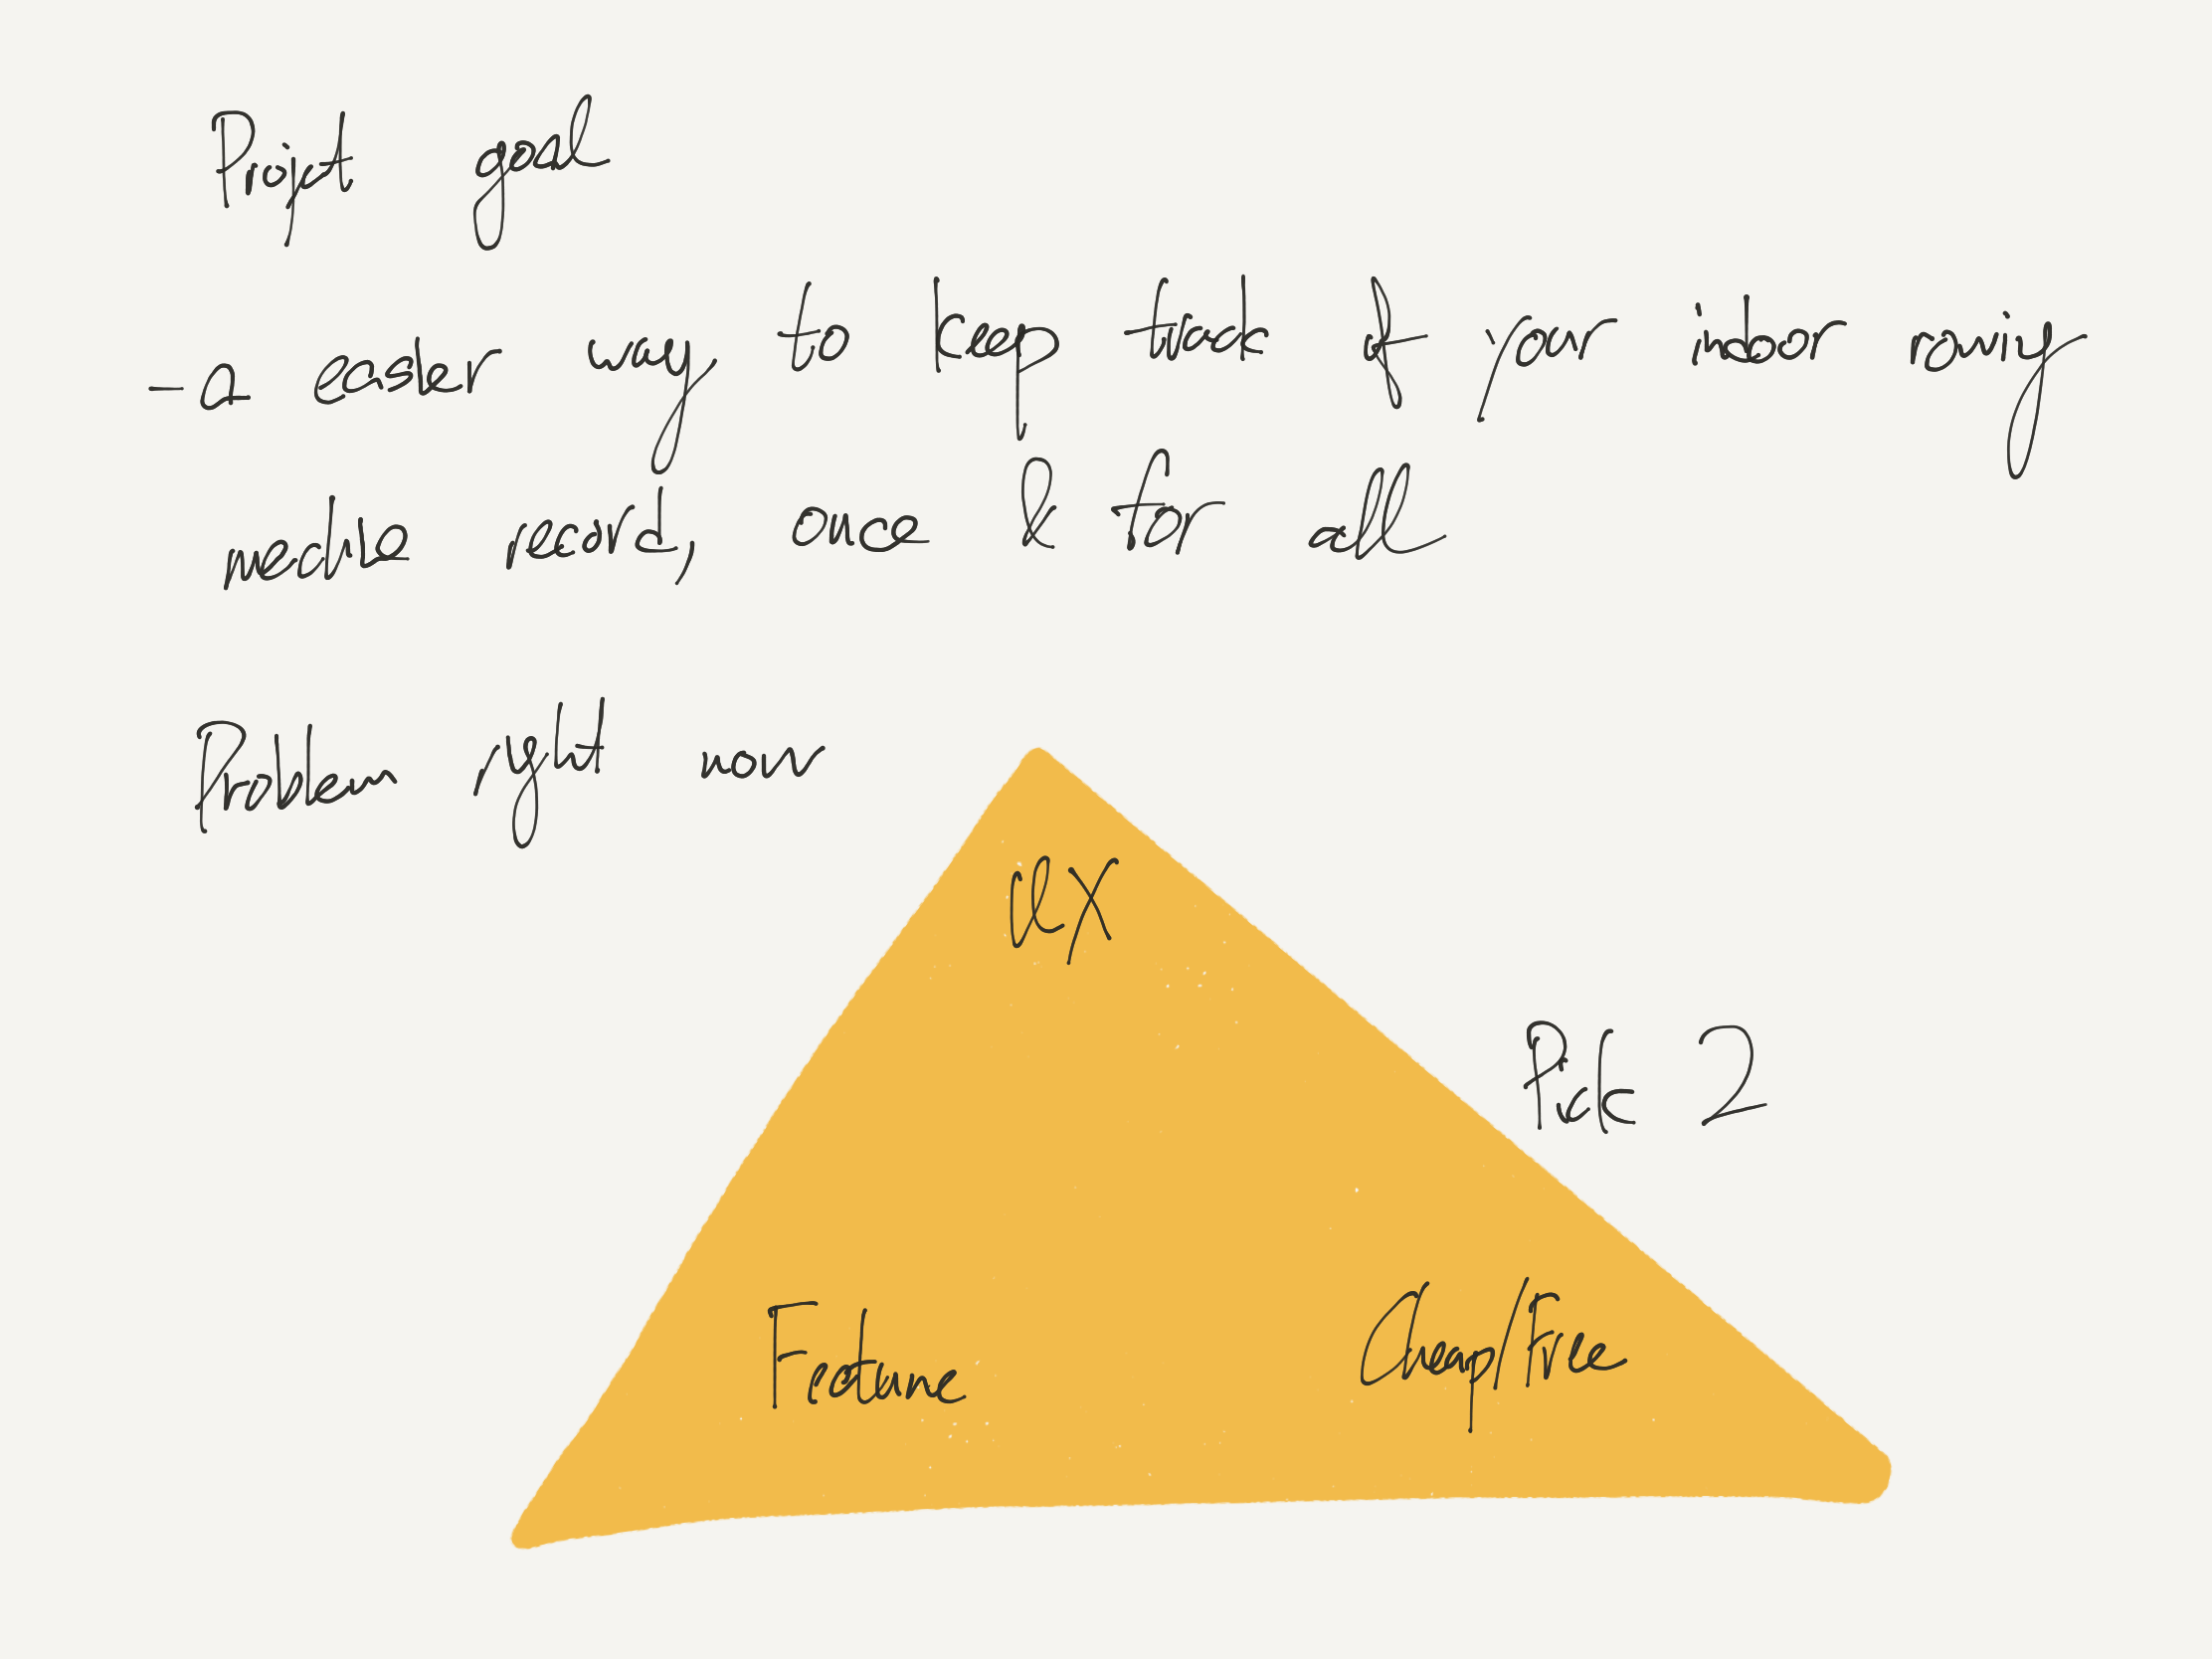 Project goal
- a easier way to keep track of your indoor rowing
machine record, once & for all
Problem right now
UX
Pick 2
Feature
Cheap/Free